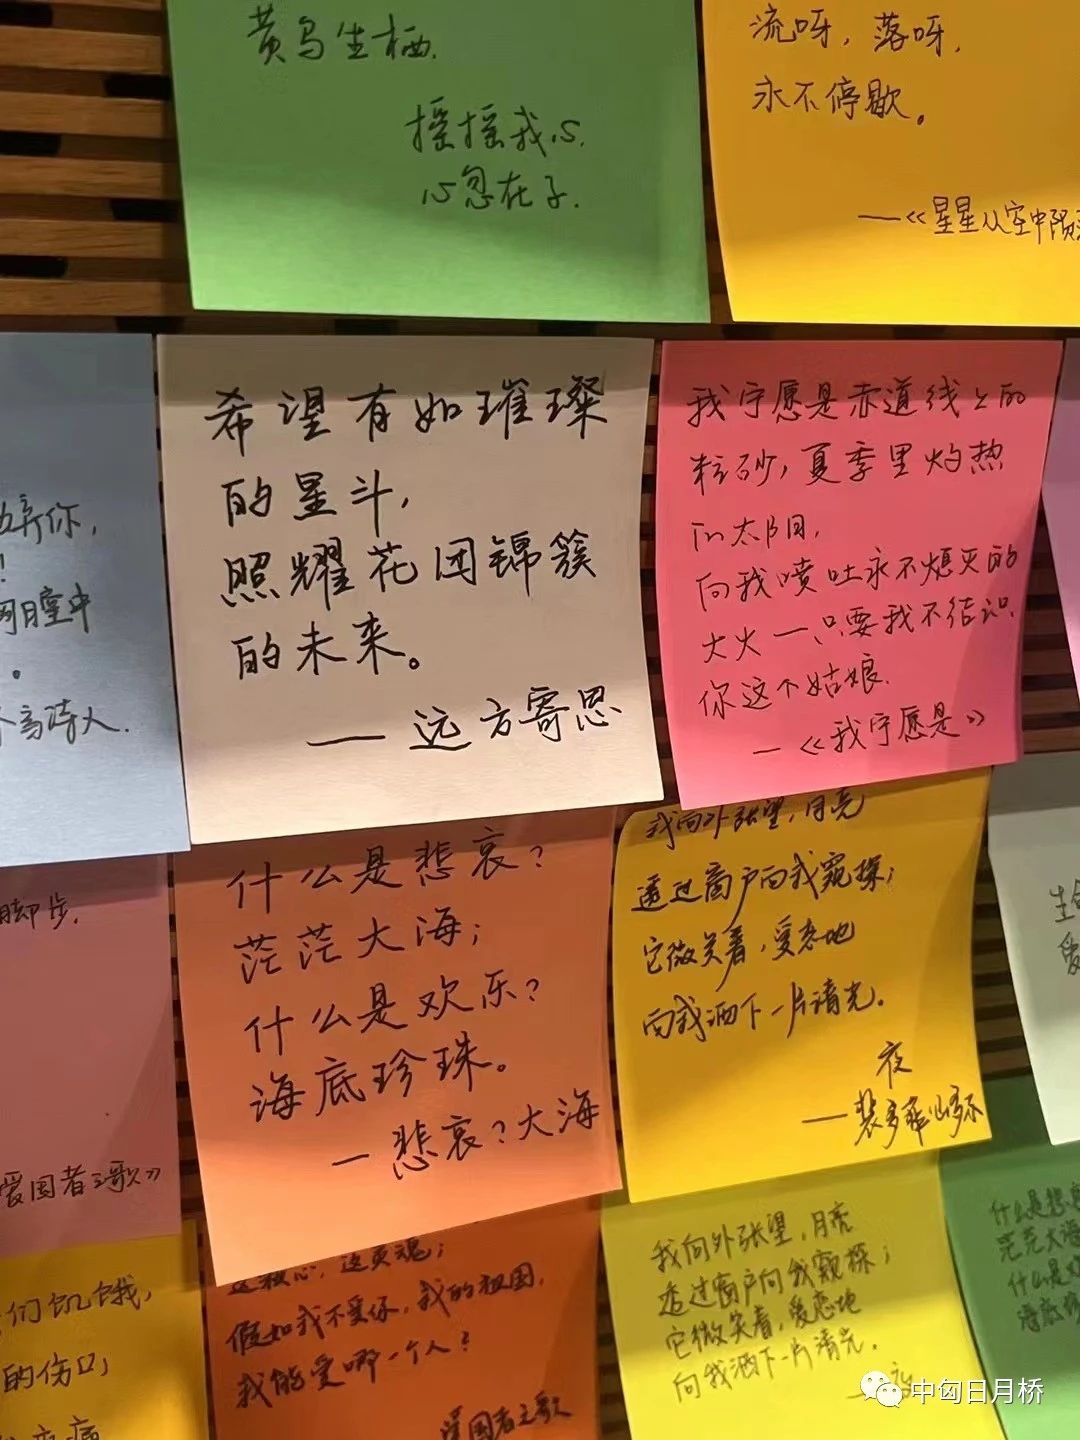 黄鸟生栖.
摇摇我心.
心忽在子.
流呀，落呀，
永不停歇。
——《星星从空中陨
弃你，
空中
高诗人.
希望有如璀璨
的星斗，
照耀花团锦簇
的未来。
——远方寄思
我宁愿是赤道线上的
粒砂，夏季里灼热
的太阳，
向我喷吐永不熄灭的
大火—只要我不结识
你这个姑娘.
—《我宁愿是》
脚步.
爱国者之歌》
什么是悲哀？
茫茫大海；
什么是欢乐？
海底珍珠。
—悲哀？大海
我向外张望，月亮
透过窗户向我窥探；
它微笑着，爱恋地
向我洒下一片清光。
夜
——裴多菲山多尔
生命
爱
们饥饿，
的伤口；
痛
这颗心，这灵魂；
假如我不爱你，我的祖国，
我能爱哪一个人？
爱国者之歌
我向外张望，月亮
透过窗户向我窥探；
它微笑着，爱恋地
向我洒下一片清光.
什么是悲哀
茫茫大海
什么是欢
海底珍
中匈日月桥